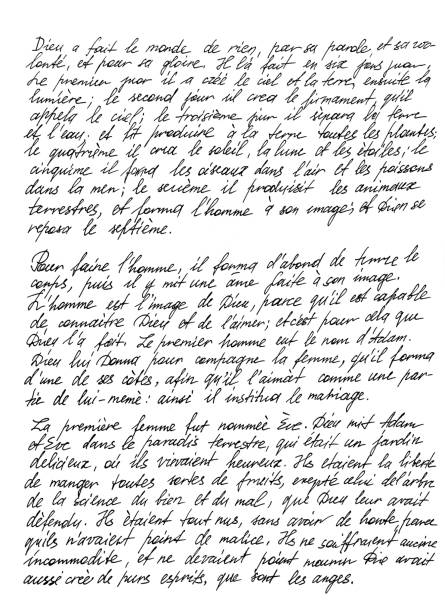 Dieu a fait le monde de rien, par sa parole, et sa vo-
lonté, et pour sa gloire. Il l'a fait en six jours
Le premier jour il a créé le ciel et la terre, ensuite la
lumière; le second jour il crea le firmament, qu'il
appela le ciel; le troisième jour il sépara la terre
et l'eau, et fit produire à la terre toutes les plantes;
le quatrième il crea le soleil, la lune et les étoiles; le
cinquième il forma les oiseaux dans l'air et les poissons
dans la mer; le sixième il produisit les animaux
terrestres, et forma l'homme à son image; et Dieu se
reposa le septième.
Pour faire l'homme, il forma d'abord de terre le
corps, puis il y mit une ame faite à son image.
L'homme est l'image de Dieu, parce qu'il est capable
de connaître Dieu et de l'aimer; et c'est pour cela que
Dieu l'a fait. Le premier homme eut le nom d'Adam.
Dieu lui donna pour compagne la femme, qu'il forma
d'une de ses côtes, afin qu'il l'aimât comme une par-
tie de lui-meme: ainsi il institua le mariage.
La première femme fut nommée Ève. Dieu mit Adam
et Eve dans le paradis terrestre, qui était un jardin
delicieux, où ils vivaient heureux. Ils etaient la liberte
de manger toutes sortes de fruits, exepté celui del'arbre
de la science du bien et du mal, que Dieu leur avait
défendu. Ils étaient tout nus, sans avoir de honte, parce
qu'ils n'avaient point de malice. Ils ne souffraient aucune
incommodite, et ne devaient point mourir Die avait
aussi créé de purs esprits, que sont les anges.